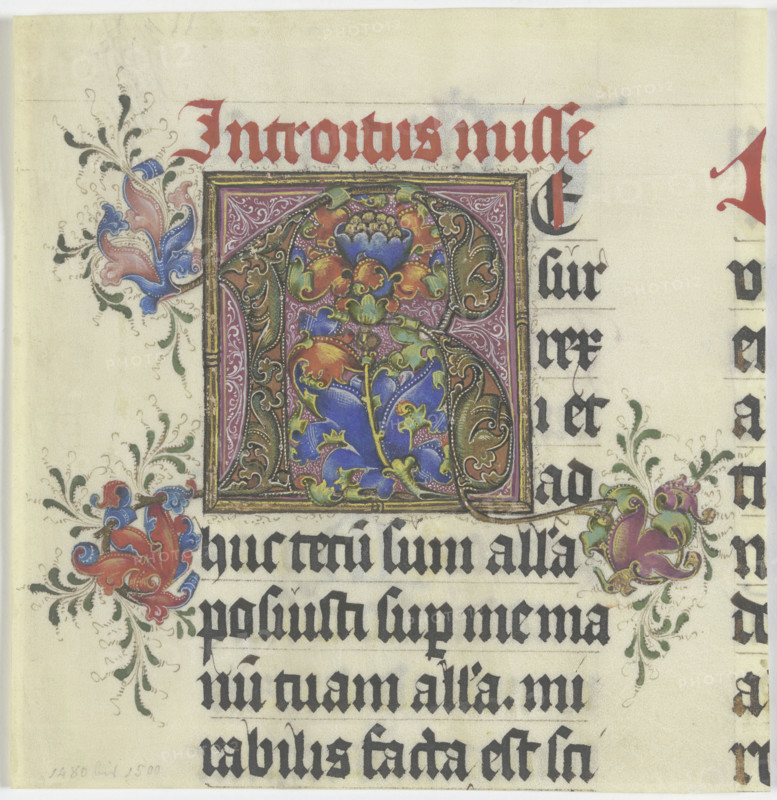 Introitus misse
R E
sur
rex
i et
ad
huc tecū sum all'a
posuisti sup me ma
nū tuam all'a. mi
rabilis facta est sci
v
a
n
a
1480 bis 1500
PHOTO12